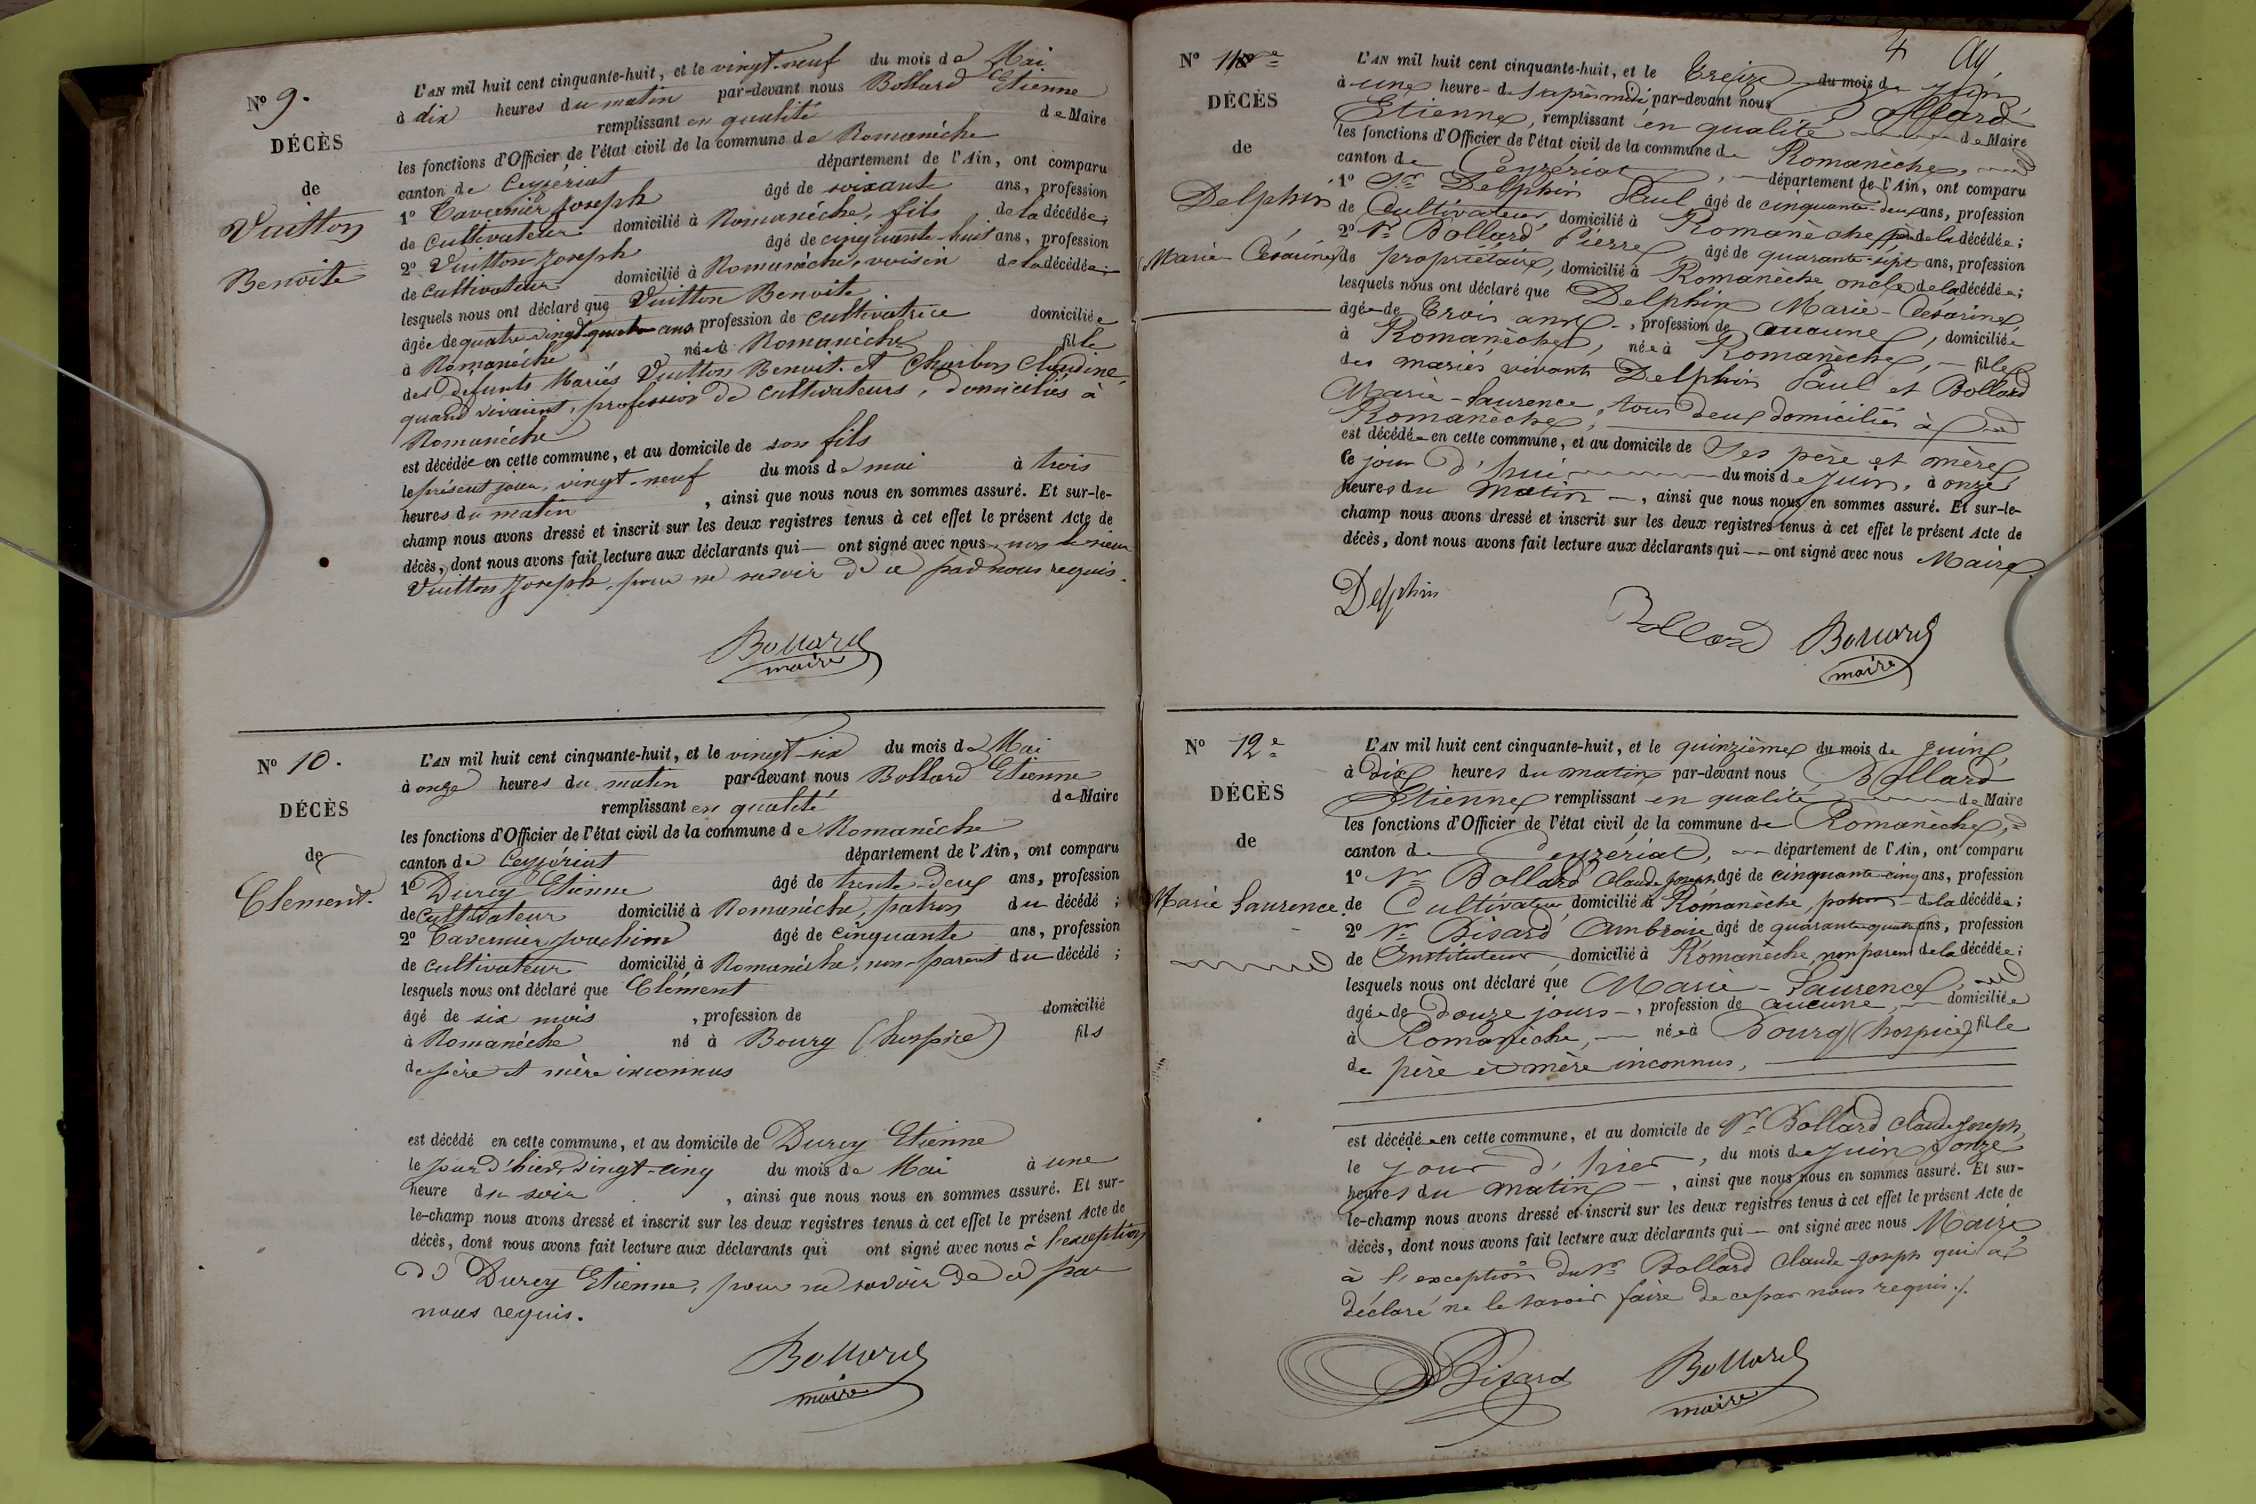 N° 9.
DÉCÈS
de
Vuitton
Benoite
L'AN mil huit cent cinquante-huit, et le vingt-neuf du mois de Mai
à dix heures du matin par-devant nous Bollard Etienne
remplissant en qualité de Maire
les fonctions d'Officier de l'état civil de la commune de Romanèche
canton de Ceyzériat département de l'Ain, ont comparu
1° Tavernier Joseph âgé de soixante ans, profession
de cultivateur domicilié à Romanèche, fils de la décédée;
2° Vuitton Joseph âgé de cinquante-huit ans, profession
de cultivateur domicilié à Romanèche, voisin de la décédée;
lesquels nous ont déclaré que Vuitton Benoite
âgée de quatre-vingt-quatre ans profession de cultivatrice domiciliée
à Romanèche née à Romanèche fille
des défunts Mariés Vuitton Benoit et Charbon Claudine,
quand vivaient, profession de cultivateurs, domiciliés à
Romanèche
est décédée en cette commune, et au domicile de son fils
le présent jour, vingt-neuf du mois de mai à trois
heures du matin, ainsi que nous nous en sommes assuré. Et sur-le-
champ nous avons dressé et inscrit sur les deux registres tenus à cet effet le présent Acte de
décès, dont nous avons fait lecture aux déclarants qui — ont signé avec nous non le sieur
Vuitton Joseph, pour ne savoir de ce par nous requis.
Bollard
maire
N° 10.
DÉCÈS
de
Clement.
L'AN mil huit cent cinquante-huit, et le vingt-six du mois de Mai
à onze heures du matin par-devant nous Bollard Etienne
remplissant en qualité de Maire
les fonctions d'Officier de l'état civil de la commune de Romanèche
canton de Ceyzériat département de l'Ain, ont comparu
1° Durey Etienne âgé de trente-deux ans, profession
de cultivateur domicilié à Romanèche, patron du décédé;
2° Tavernier Joachim âgé de cinquante ans, profession
de cultivateur domicilié à Romanèche, non-parent du décédé;
lesquels nous ont déclaré que Clement
âgé de six mois, profession de domicilié
à Romanèche né à Bourg (hospice) fils
de père et mère inconnus
est décédé en cette commune, et au domicile de Durey Etienne
le jour d'hier vingt-cinq du mois de Mai à une
heure du soir, ainsi que nous nous en sommes assuré. Et sur-
le-champ nous avons dressé et inscrit sur les deux registres tenus à cet effet le présent Acte de
décès, dont nous avons fait lecture aux déclarants qui ont signé avec nous à l'exception
de Durey Etienne, pour ne savoir de ce par
nous requis.
Bollard
maire
4
N° 11e
DÉCÈS
de
Delphin
Marie-Césarine
L'AN mil huit cent cinquante-huit, et le Treize du mois de Juin
à une heure de l'après midi par-devant nous Bollard
Etienne, remplissant en qualité de Maire
les fonctions d'Officier de l'état civil de la commune de Romanèche,
canton de Ceyzériat, département de l'Ain, ont comparu
1° Sr Delphin Paul âgé de cinquante-deux ans, profession
de Cultivateur, domicilié à Romanèche père de la décédée;
2° Sr Bollard Pierre, âgé de quarante-sept ans, profession
de propriétaire, domicilié à Romanèche oncle de la décédée;
lesquels nous ont déclaré que Delphin Marie-Césarine
âgée de Trois ans, profession de aucune, domiciliée
à Romanèche, née à Romanèche, fille
des mariés vivants Delphin Paul et Bollard
Marie-Laurence, tous deux domiciliés à
Romanèche,
est décédée en cette commune, et au domicile de Ses père et mère
le jour d'hui du mois de Juin, à onze
heures du matin, ainsi que nous nous en sommes assuré. Et sur-le-
champ nous avons dressé et inscrit sur les deux registres tenus à cet effet le présent Acte de
décès, dont nous avons fait lecture aux déclarants qui — ont signé avec nous Maire.
Delphin
Bollard
Bollard
maire
N° 12e
DÉCÈS
de
Marie Laurence.
L'AN mil huit cent cinquante-huit, et le quinzième du mois de Juin,
à dix heures du matin par-devant nous Bollard
Etienne remplissant en qualité de Maire
les fonctions d'Officier de l'état civil de la commune de Romanèche,
canton de Ceyzériat, département de l'Ain, ont comparu
1° Sr Bollard Claude Joseph âgé de cinquante-cinq ans, profession
de Cultivateur domicilié à Romanèche, patron de la décédée;
2° Sr Bisard Ambroise âgé de quarante-quatre ans, profession
de Instituteur, domicilié à Romanèche, non parent de la décédée;
lesquels nous ont déclaré que Marie-Laurence,
âgée de Douze jours, profession de aucune, domiciliée
à Romanèche, née à Bourg (hospice) fille
de père et mère inconnus,
est décédée en cette commune, et au domicile de Sr Bollard Claude Joseph,
le jour d'hier, du mois de Juin à onze
heures du matin, ainsi que nous nous en sommes assuré. Et sur-
le-champ nous avons dressé et inscrit sur les deux registres tenus à cet effet le présent Acte de
décès, dont nous avons fait lecture aux déclarants qui — ont signé avec nous Maire
à l'exception du Sr Bollard Claude-Joseph qui a
déclaré ne le savoir faire de ce par nous requis./.
Bisard
Bollard
maire